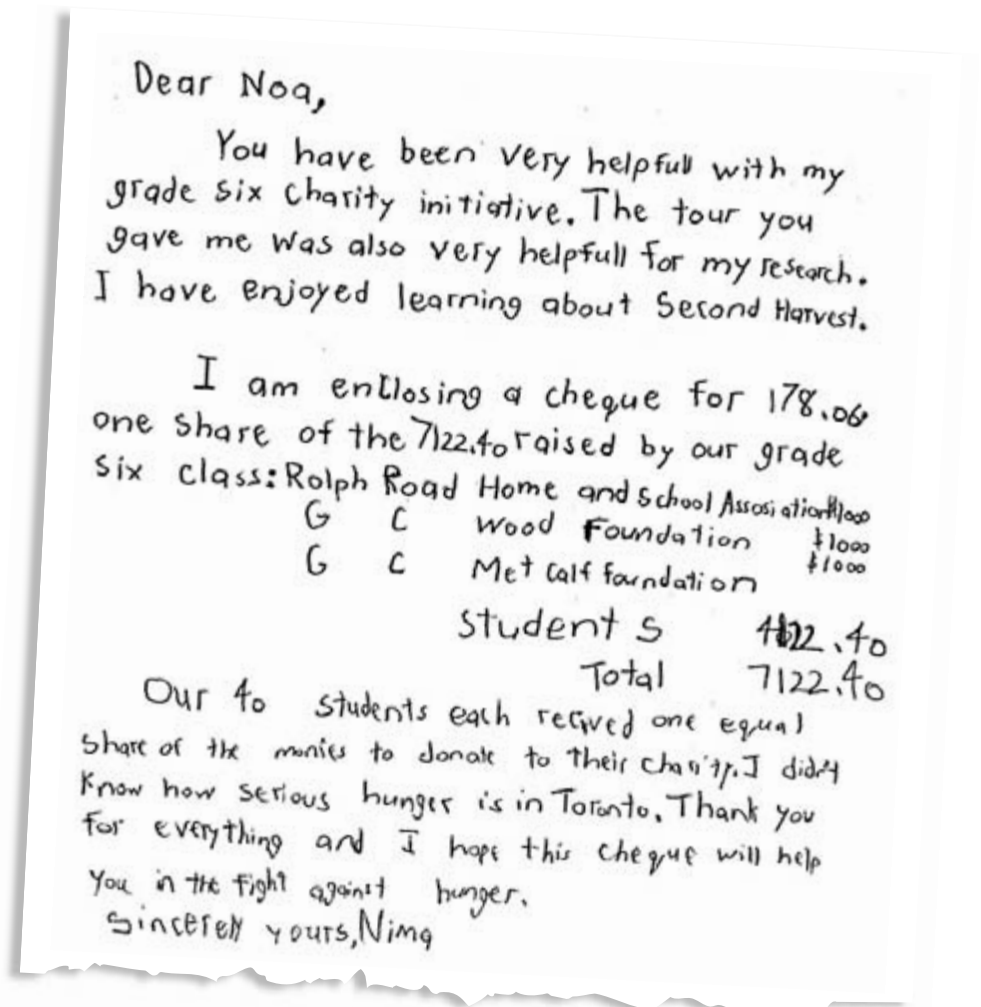 Dear Noa,
You have been very helpfull with my
grade six Charity initiative. The tour you
gave me was also very helpfull for my research.
I have enjoyed learning about Second Harvest.
I am enclosing a cheque for 178.06
one share of the 7122.40 raised by our grade
six class: Rolph Road Home and School Assosiation $1000
G C Wood Foundation $1000
G C Metcalf foundation $1000
Students 4122.40
Total 7122.40
Our 40 students each recived one equal
share of the monies to donate to their charity. I didn't
know how serious hunger is in Toronto. Thank you
for everything and I hope this cheque will help
you in the fight against hunger.
Sincerely yours, Nima